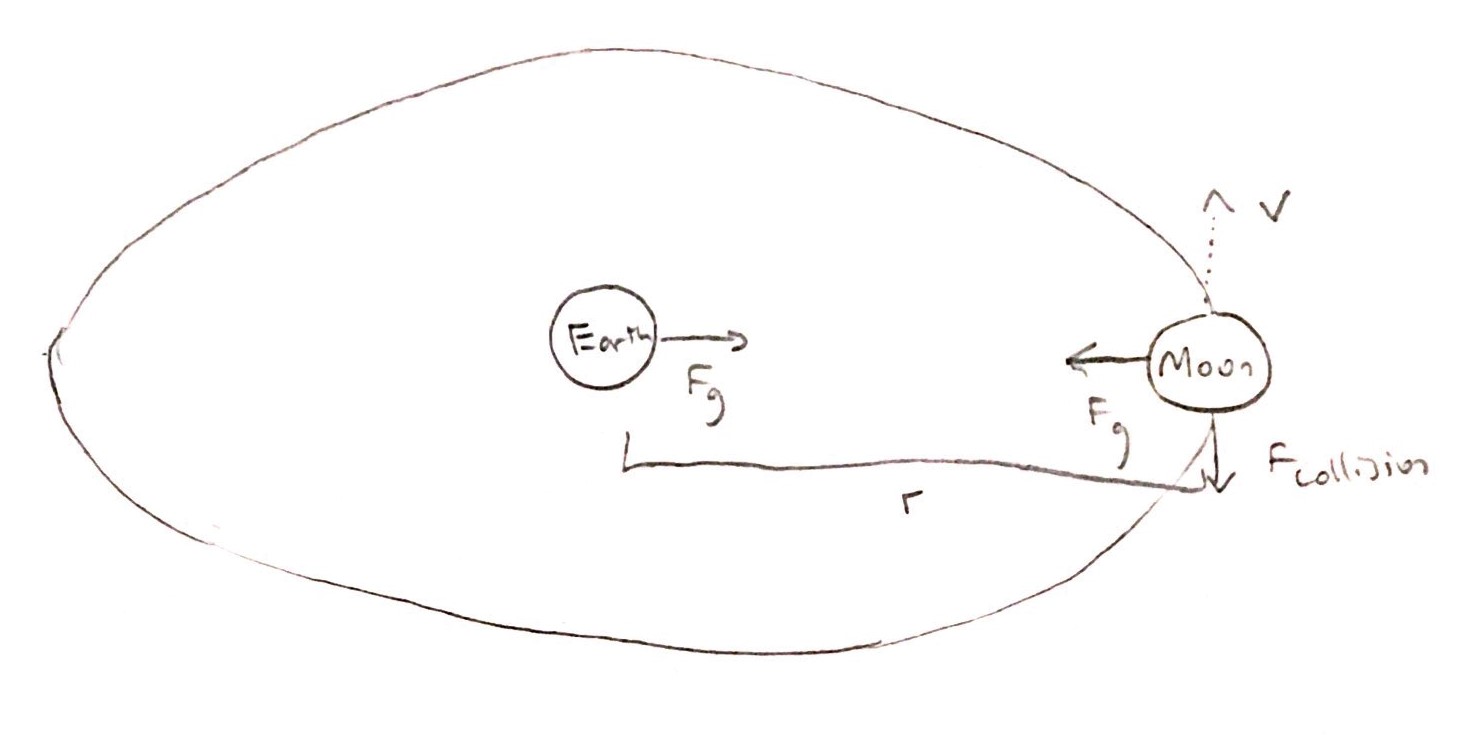 V
Earth
Moon
Fg
Fg
Fcollision
r